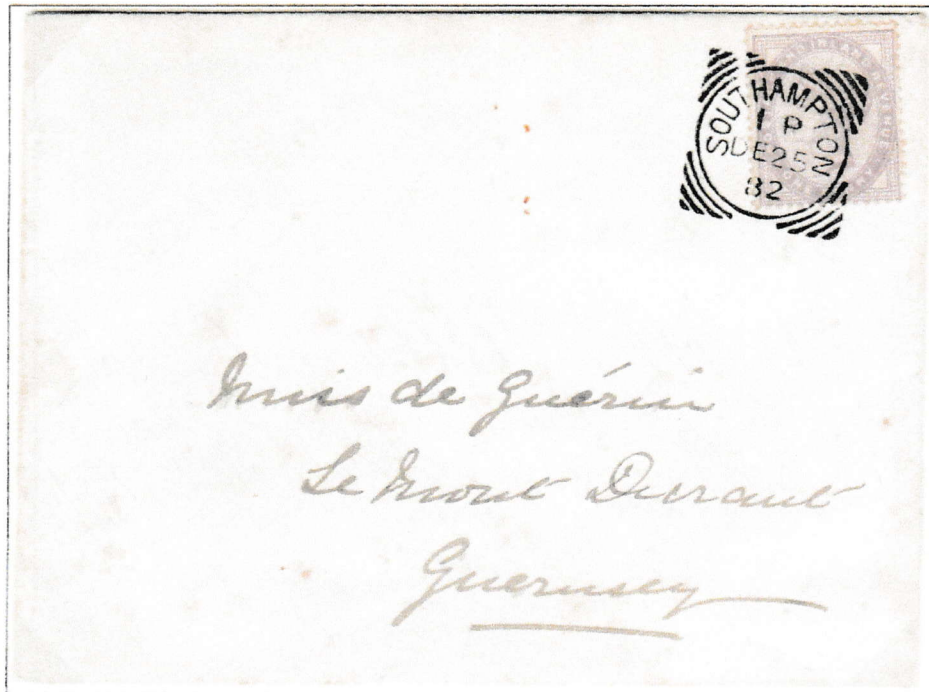 SOUTHAMPTON
1 P
DE 25
82
Miss de Guérin
Le Mont Durant
Guernsey